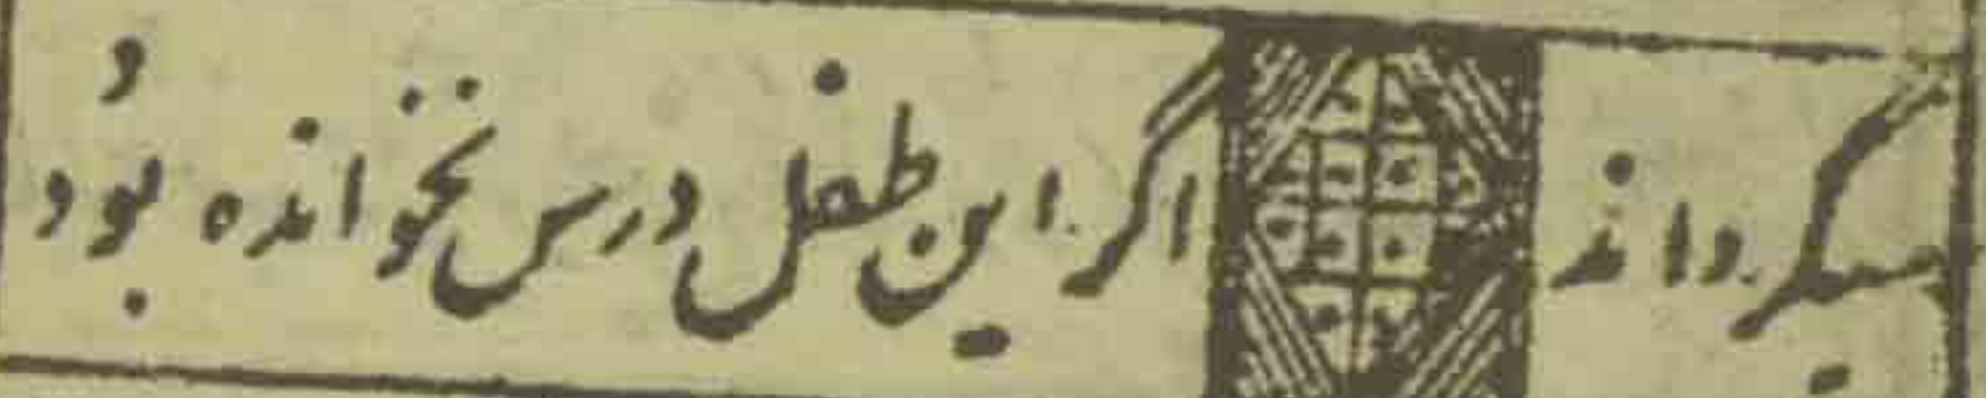 میگرداند اگر این طفل درس نخوانده بُود